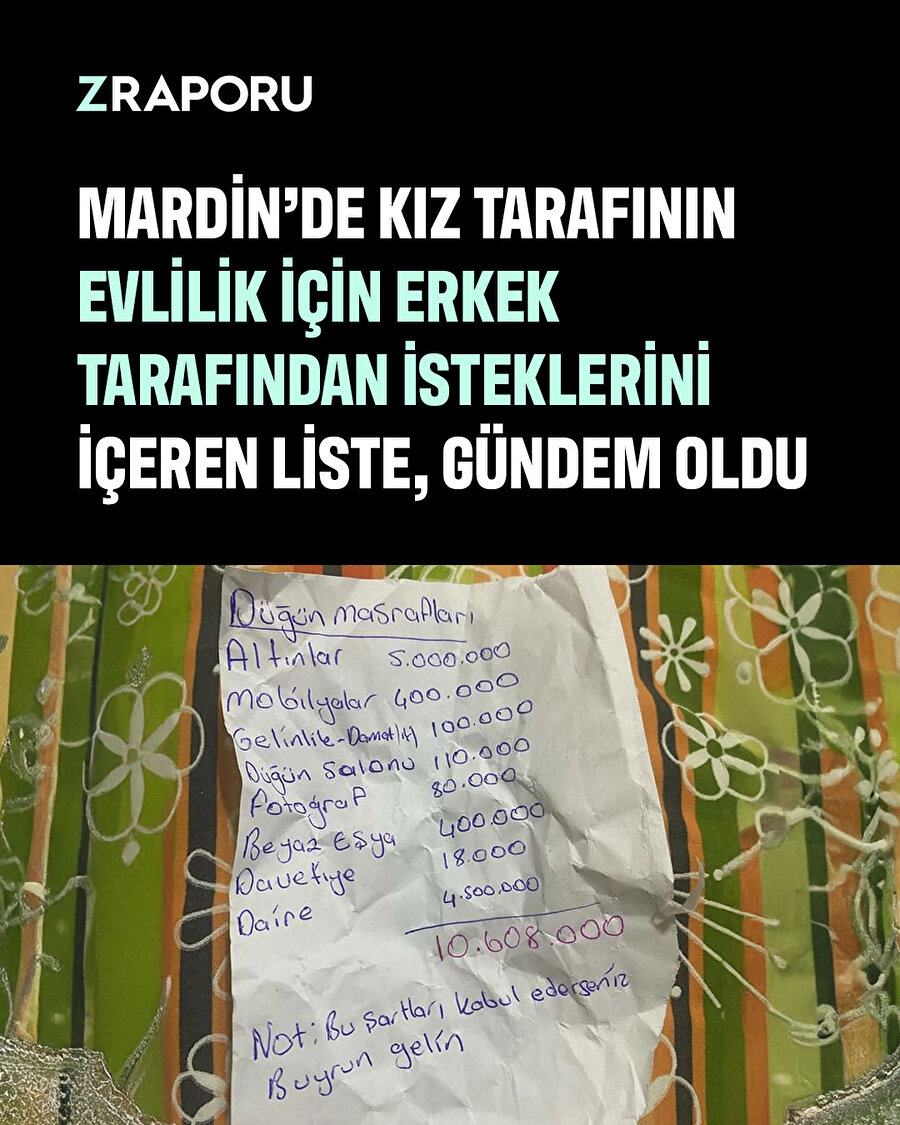 ZRAPORU
MARDİN'DE KIZ TARAFININ
EVLİLİK İÇİN ERKEK
TARAFINDAN İSTEKLERİNİ
İÇEREN LİSTE, GÜNDEM OLDU
Düğün masrafları
Altınlar 5.000.000
mobilyalar 400.000
Gelinlik-Damatlık 100.000
Düğün salonu 110.000
Fotoğraf 80.000
Beyaz Eşya 400.000
Davetiye 18.000
Daire 4.500.000
10.608.000
Not: Bu şartları kabul ederseniz
Buyrun gelin